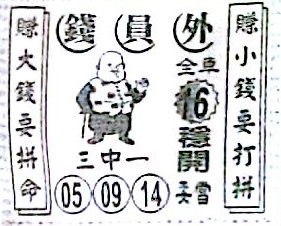 外員錢
賺小錢要打拼
全車
16
穩開
要當
三中一
05 09 14
賺大錢要拼命